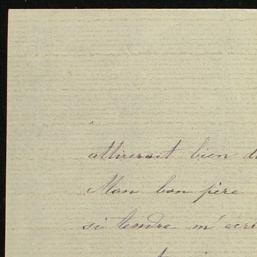 attirerait bien d
Mon bon père
si tendre m'écri